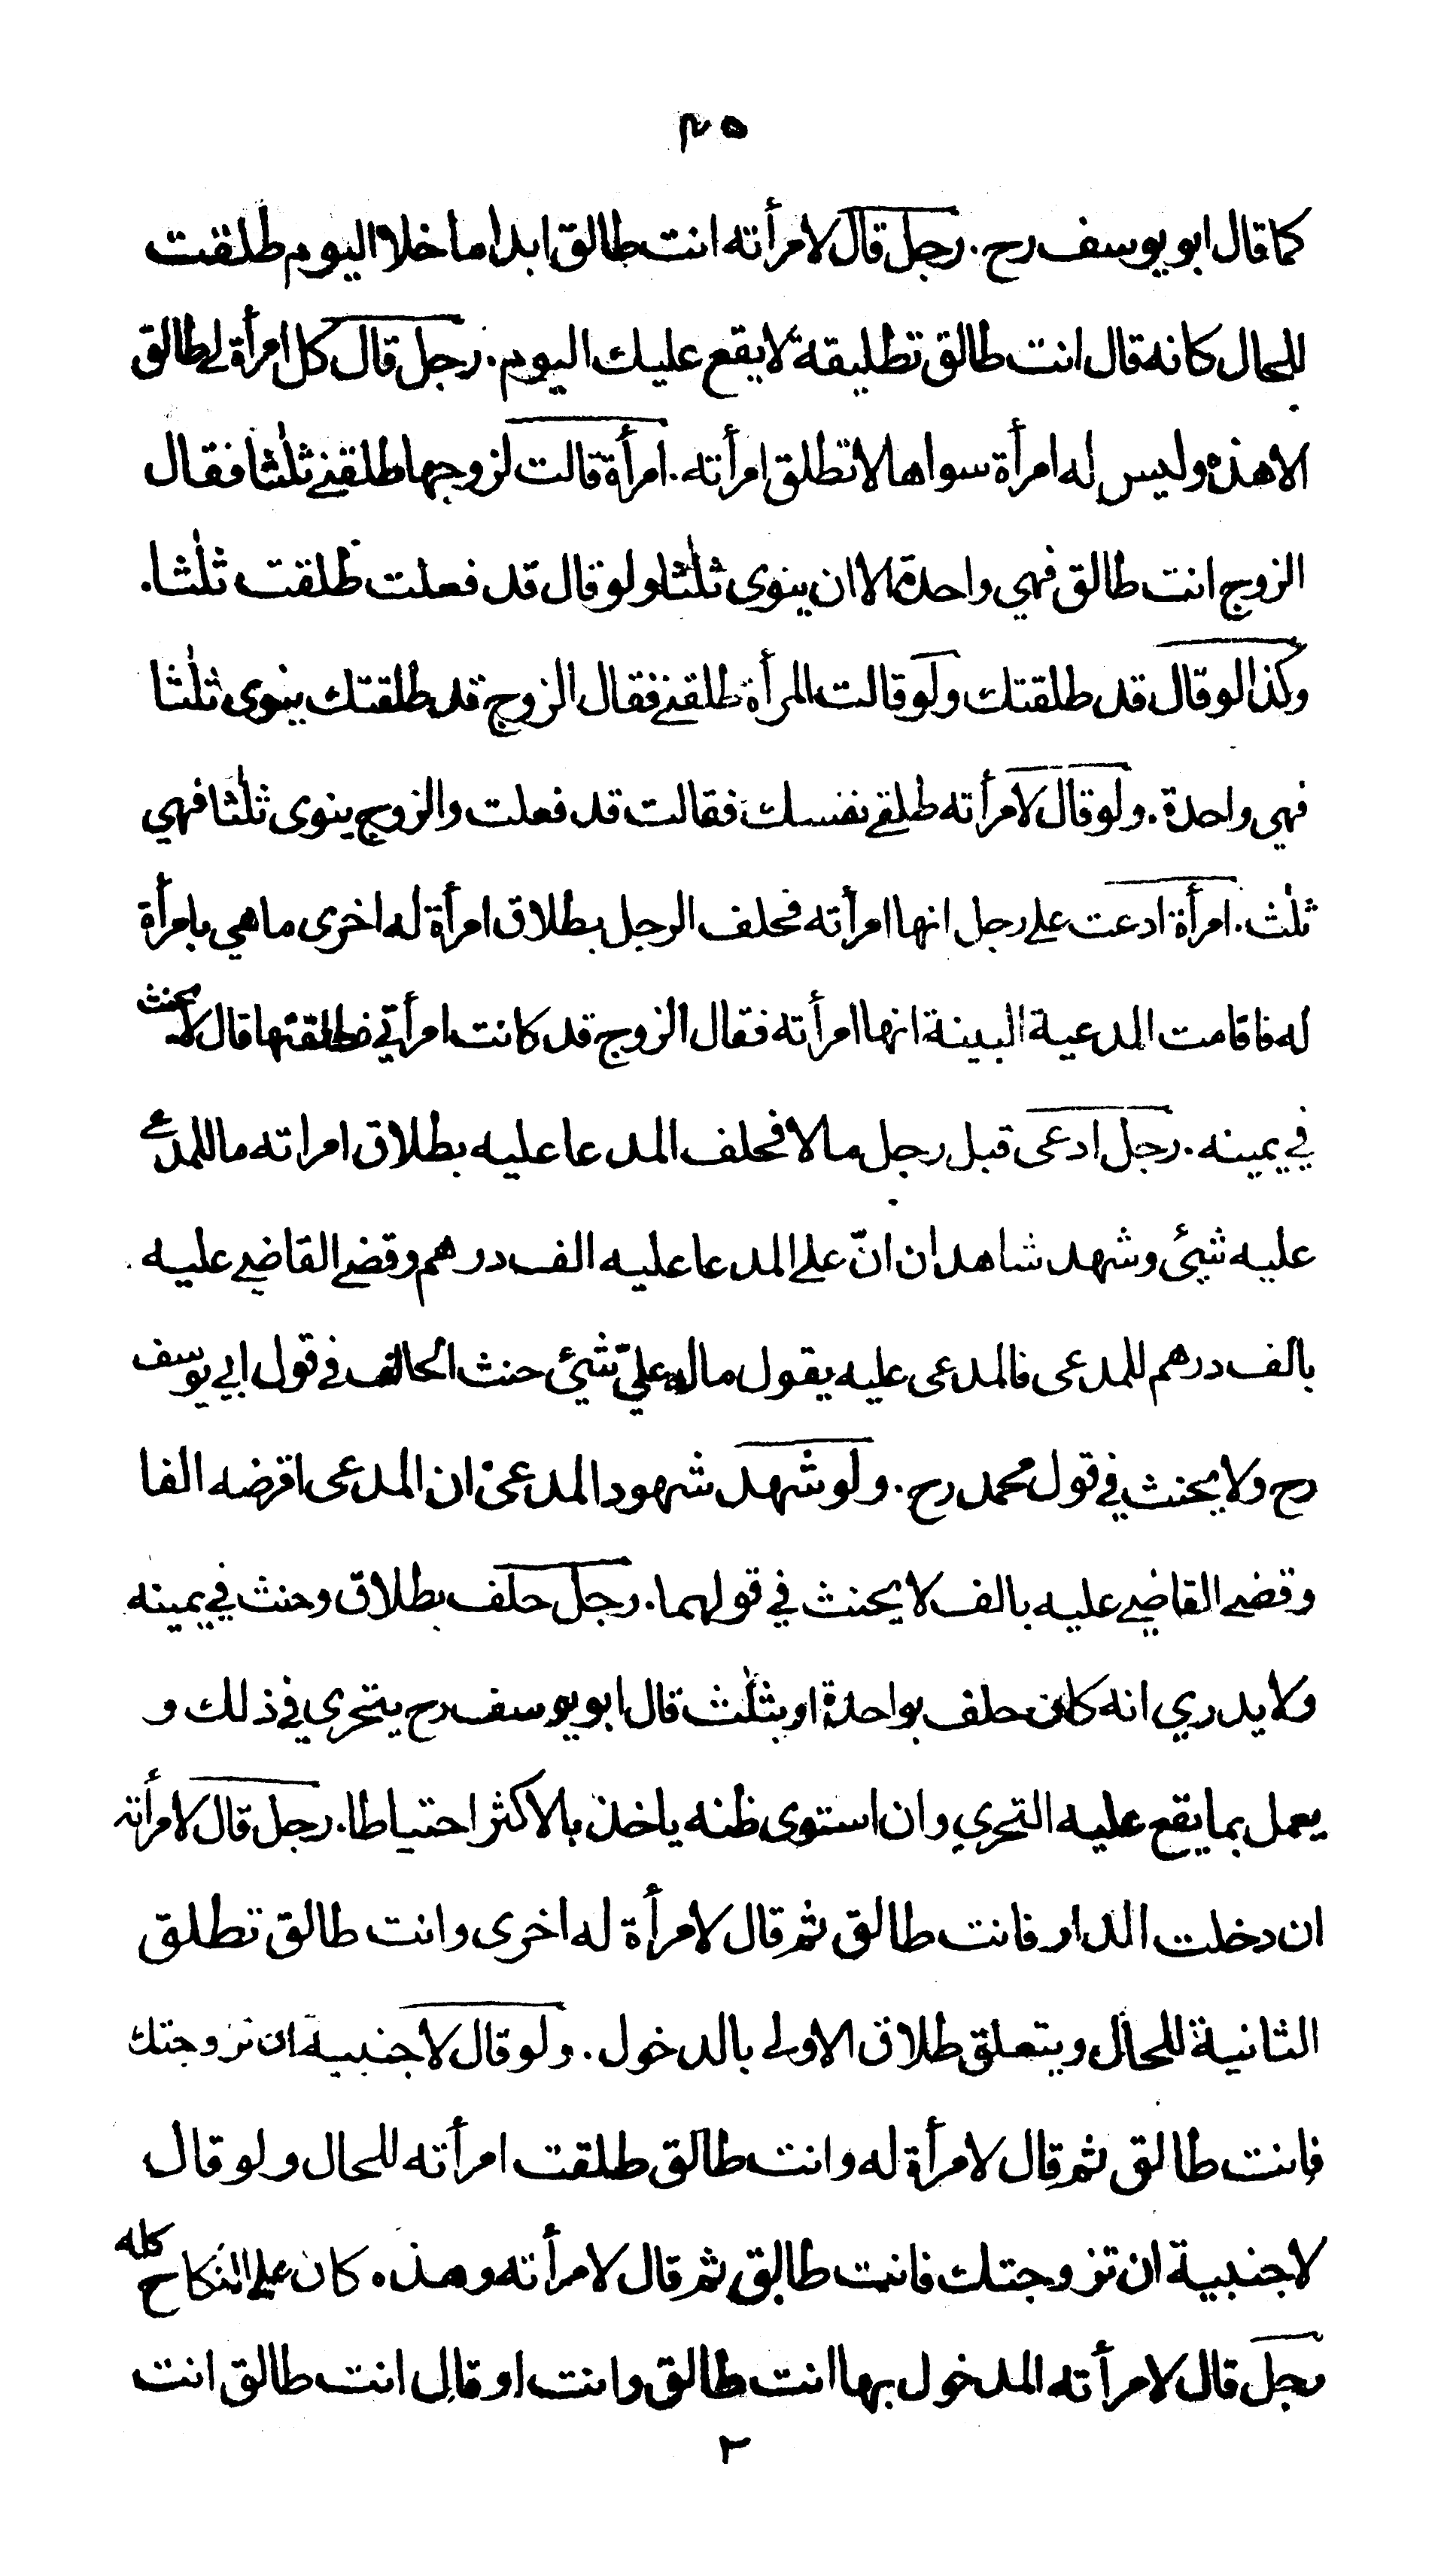 ٣٥
كما قال ابو يوسف رح. رجل قال لامرأته انت طالق ابدا ما خلا اليوم طلقت
للحال كانه قال انت طالق تطليقة لا يقع عليك اليوم. رجل قال كل امرأة لي طالق
الا هذه وليس له امرأة سواها لا تطلق امرأته. امرأة قالت لزوجها طلقني ثلٰثا فقال
الزوج انت طالق فهي واحدة الا ان ينوى ثلٰثا ولو قال قد فعلت طلقت ثلٰثا.
وكذا لو قال قد طلقتك ولو قالت المرأة طلقني فقال الزوج قد طلقتك ينوى ثلٰثا
فهي واحدة. ولو قال لامرأته طلقي نفسك فقالت قد فعلت والزوج ينوى ثلٰثا فهي
ثلٰث. امرأة ادعت على رجل انها امرأته فحلف الرجل بطلاق امرأة له اخرى ما هي بامرأة
له فاقامت المدعية البينة انها امرأته فقال الزوج قد كانت امرأتي فطلقتها قال لا يحنث
في يمينه. رجل ادعى قبل رجل مالا فحلف المدعا عليه بطلاق امراته ما للمدعي
عليه شيئ وشهد شاهدان انّ على المدعا عليه الف درهم وقضى القاضي عليه
بالف درهم للمدعى فالمدعى عليه يقول ماله عليّ شيئ حنث الحالف في قول ابي يوسف
رح ولا يحنث في قول محمد رح. ولو شهد شهود المدعى ان المدعى اقرضه الفا
وقضى القاضي عليه بالف لا يحنث في قولهما. رجل حلف بطلاق وحنث في يمينه
ولا يدري انه كان حلف بواحدة او بثلٰث قال ابو يوسف رح يتحرى في ذلك و
يعمل بما يقع عليه التحري وان استوى ظنه ياخذ بالاكثر احتياطا. رجل قال لامرأته
ان دخلت الدار فانت طالق ثم قال لامرأة له اخرى وانت طالق تطلق
الثانية للحال ويتعلق طلاق الاولى بالدخول. ولو قال لاجنبية ان تزوجتك
فانت طالق ثم قال لامرأة له وانت طالق طلقت امرأته للحال ولو قال
لاجنبية ان تزوجتك فانت طالق ثم قال لامرأته وهذه كان على النكاح كله
رجل قال لامرأته المدخول بها انت طالق وانت او قال انت طالق انت
٢